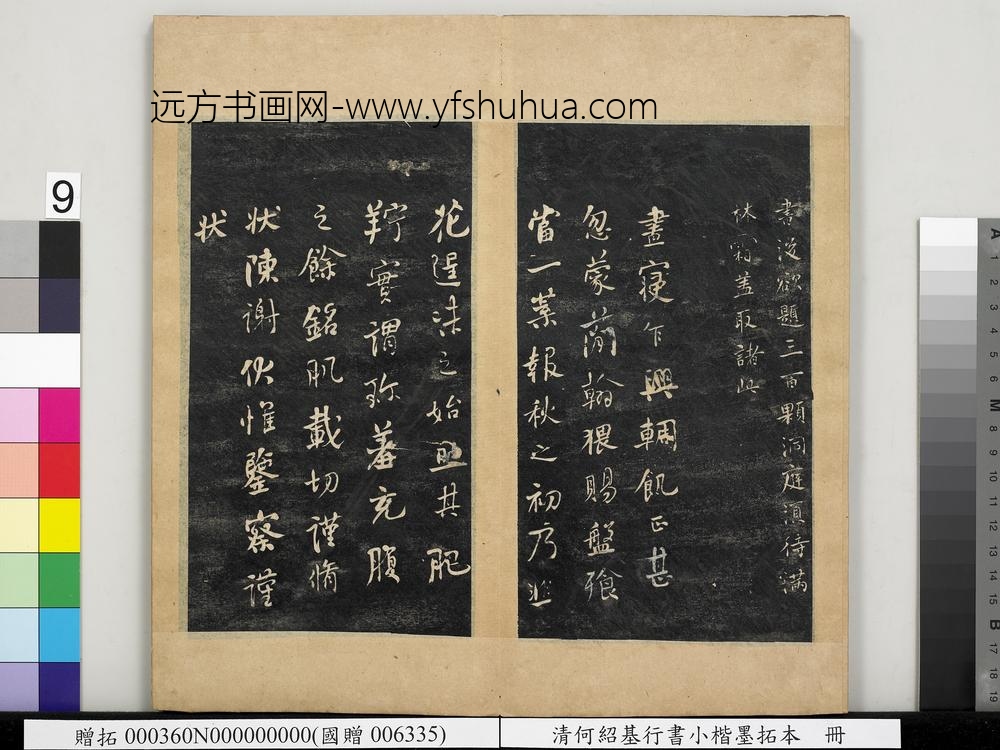 远方书画网-www.yfshuhua.com
9
書後欲題三百顆洞庭須待滿
林霜蓋取諸此
晝寢乍興輖飢正甚
忽蒙簡翰猥賜盤飱
當一葉報秋之初乃韭
花逞味之始助其肥
羜實謂珍羞充腹
之餘銘肌載切謹脩
狀陳謝伏惟鑒察謹
狀
A 1 2 3 4 5 6 M 8 9 10 11 12 13 14 15 B 17 18 19
贈拓 000360N000000000(國贈 006335)
清何紹基行書小楷墨拓本 冊